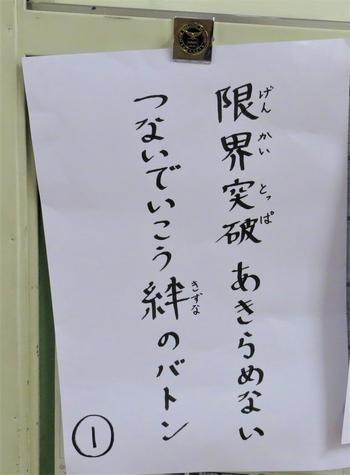 限界突破あきらめない
げんかいとっぱ
つないでいこう絆のバトン
きずな
1